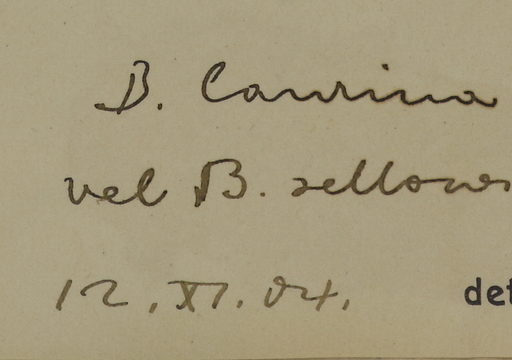 B. Laurina
vel B. sellowi
12. XI. 04. det